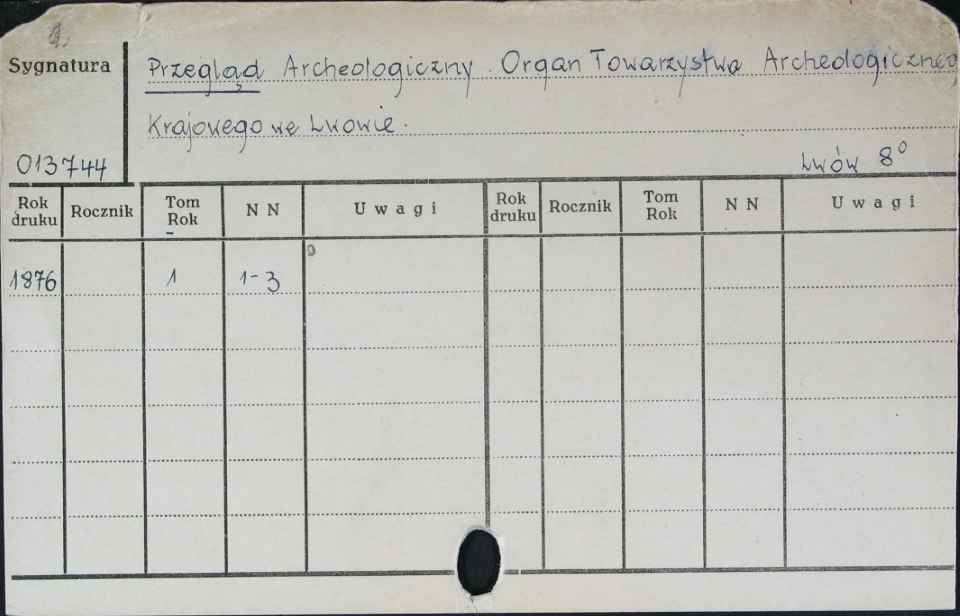 Sygnatura
Przegląd Archeologiczny. Organ Towarzystwa Archeologicznego
Krajowego we Lwowie.
013744
Lwów 8°
Rok druku Rocznik Tom Rok NN Uwagi Rok druku Rocznik Tom Rok NN Uwagi
1876 1 1-3